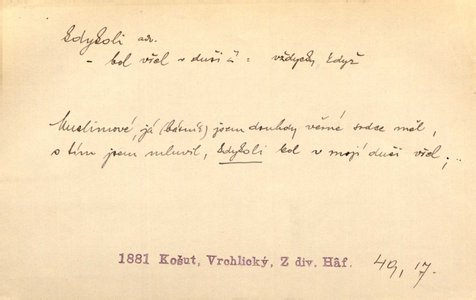 kdykoli adv.
- bol vřel v duši = vždycky, když
Muslimové, já (básník) jsem druhdy věrné srdce měl,
s tím jsem mluvil, kdykoli bol v mojí duši vřel; ..
1881 Košut, Vrchlický, Z div. Háf. 49, 17.